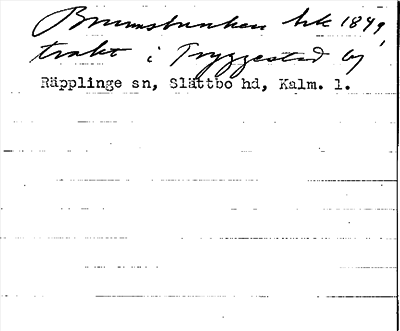 Brunnsbunken hk 1849,
trakt i Tryggestad by
Räpplinge sn, Slättbo hd, Kalm. l.